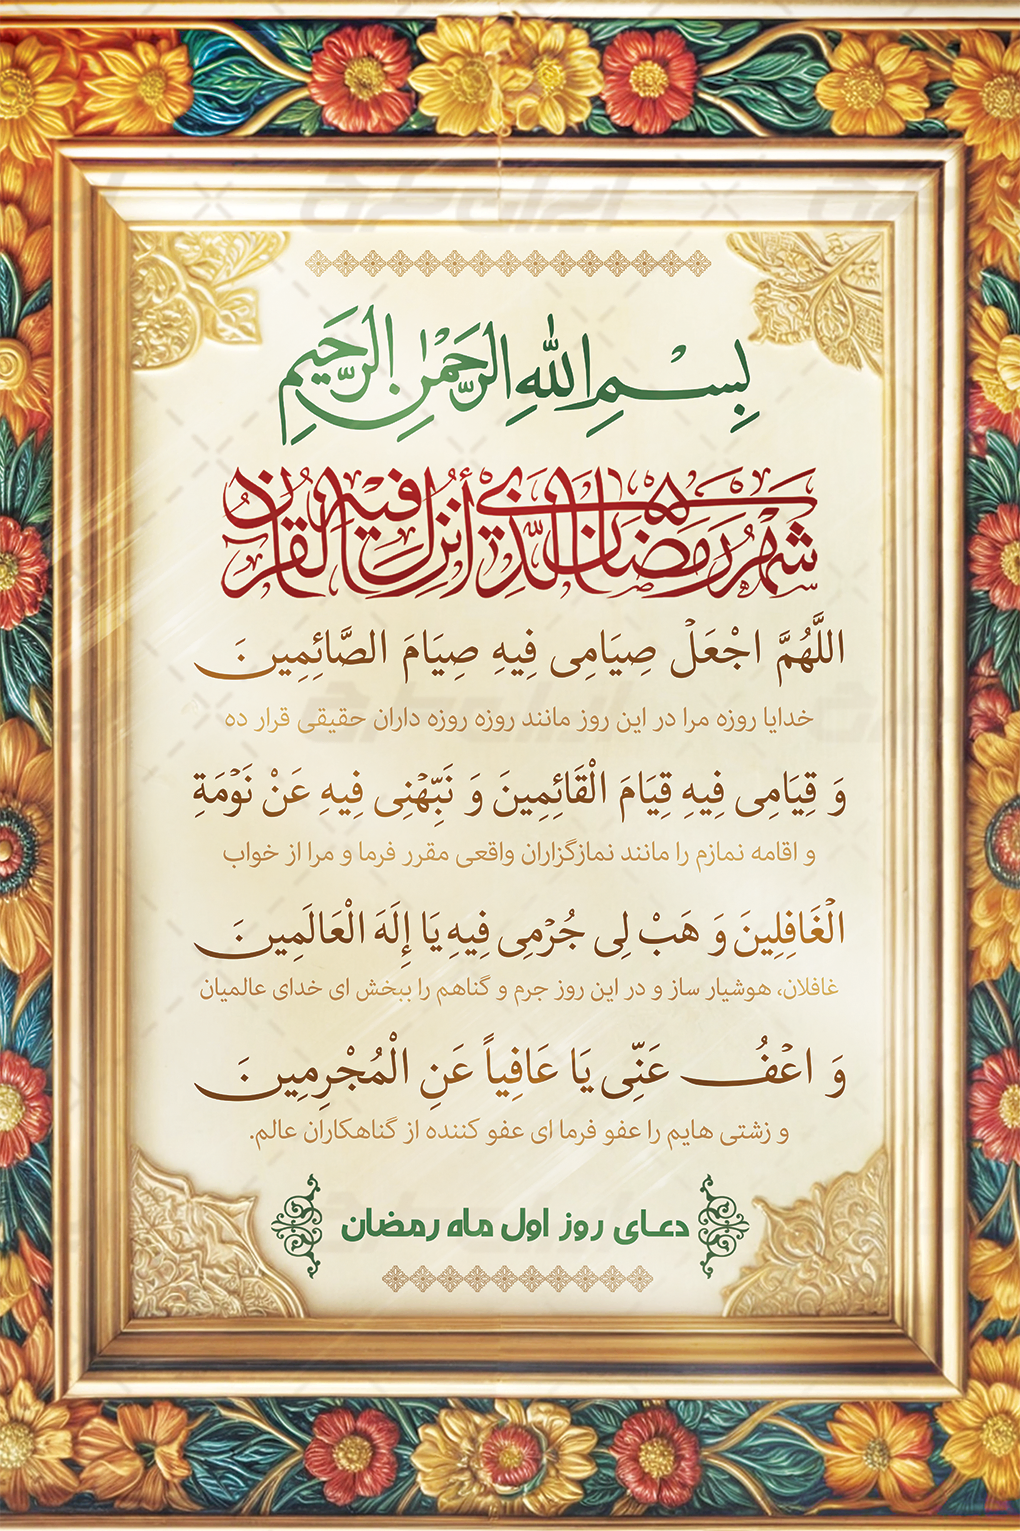 بِسْمِ اللهِ الرَّحْمٰنِ الرَّحِيمِ
شَهْرُ رَمَضَانَ الَّذِي أُنْزِلَ فِيهِ الْقُرْآنُ
اللَّهُمَّ اجْعَلْ صِيَامِي فِيهِ صِيَامَ الصَّائِمِينَ
خدایا روزه مرا در این روز مانند روزه روزه داران حقیقی قرار ده
وَ قِيَامِي فِيهِ قِيَامَ الْقَائِمِينَ وَ نَبِّهْنِي فِيهِ عَنْ نَوْمَةِ
و اقامه نمازم را مانند نمازگزاران واقعی مقرر فرما و مرا از خواب
الْغَافِلِينَ وَ هَبْ لِي جُرْمِي فِيهِ يَا إِلَهَ الْعَالَمِينَ
غافلان، هوشیار ساز و در این روز جرم و گناهم را ببخش ای خدای عالمیان
وَ اعْفُ عَنِّي يَا عَافِياً عَنِ الْمُجْرِمِينَ
و زشتی هایم را عفو فرما ای عفو کننده از گناهکاران عالم.
دعای روز اول ماه رمضان